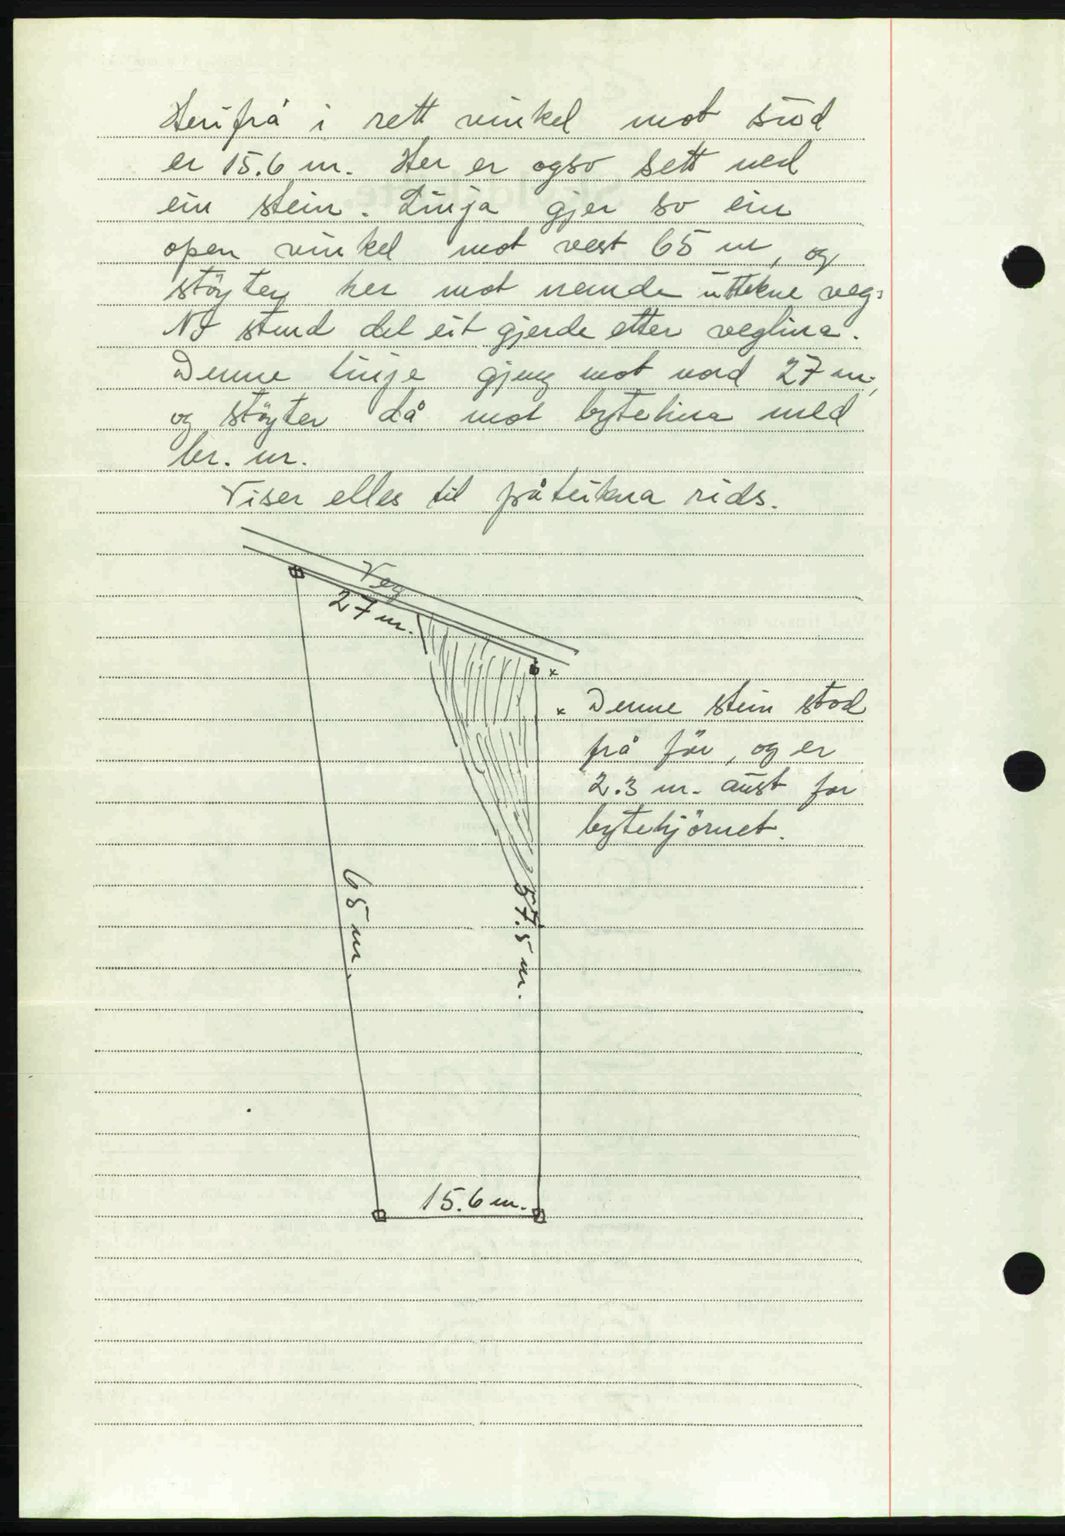 Herifrå i rett vinkel mot süd
er 15.6 m. Her er ogso sett ned
ein stein. Linja gjer so ein
open vinkel mot vest 65 m, og
støyter her mot nemde uttekne veg.
No stend det eit gjerde etter veglina.
Denne linje gjeng mot nord 27 m,
og støyter då mot bytelina med
br. nr.
Viser elles til påteikna rids.
Veg
27 m.
x
x Denne stein stod
frå för, og er
2.3 m. aust for
bytehjörnet.
65 m.
57.5 m.
15.6 m.